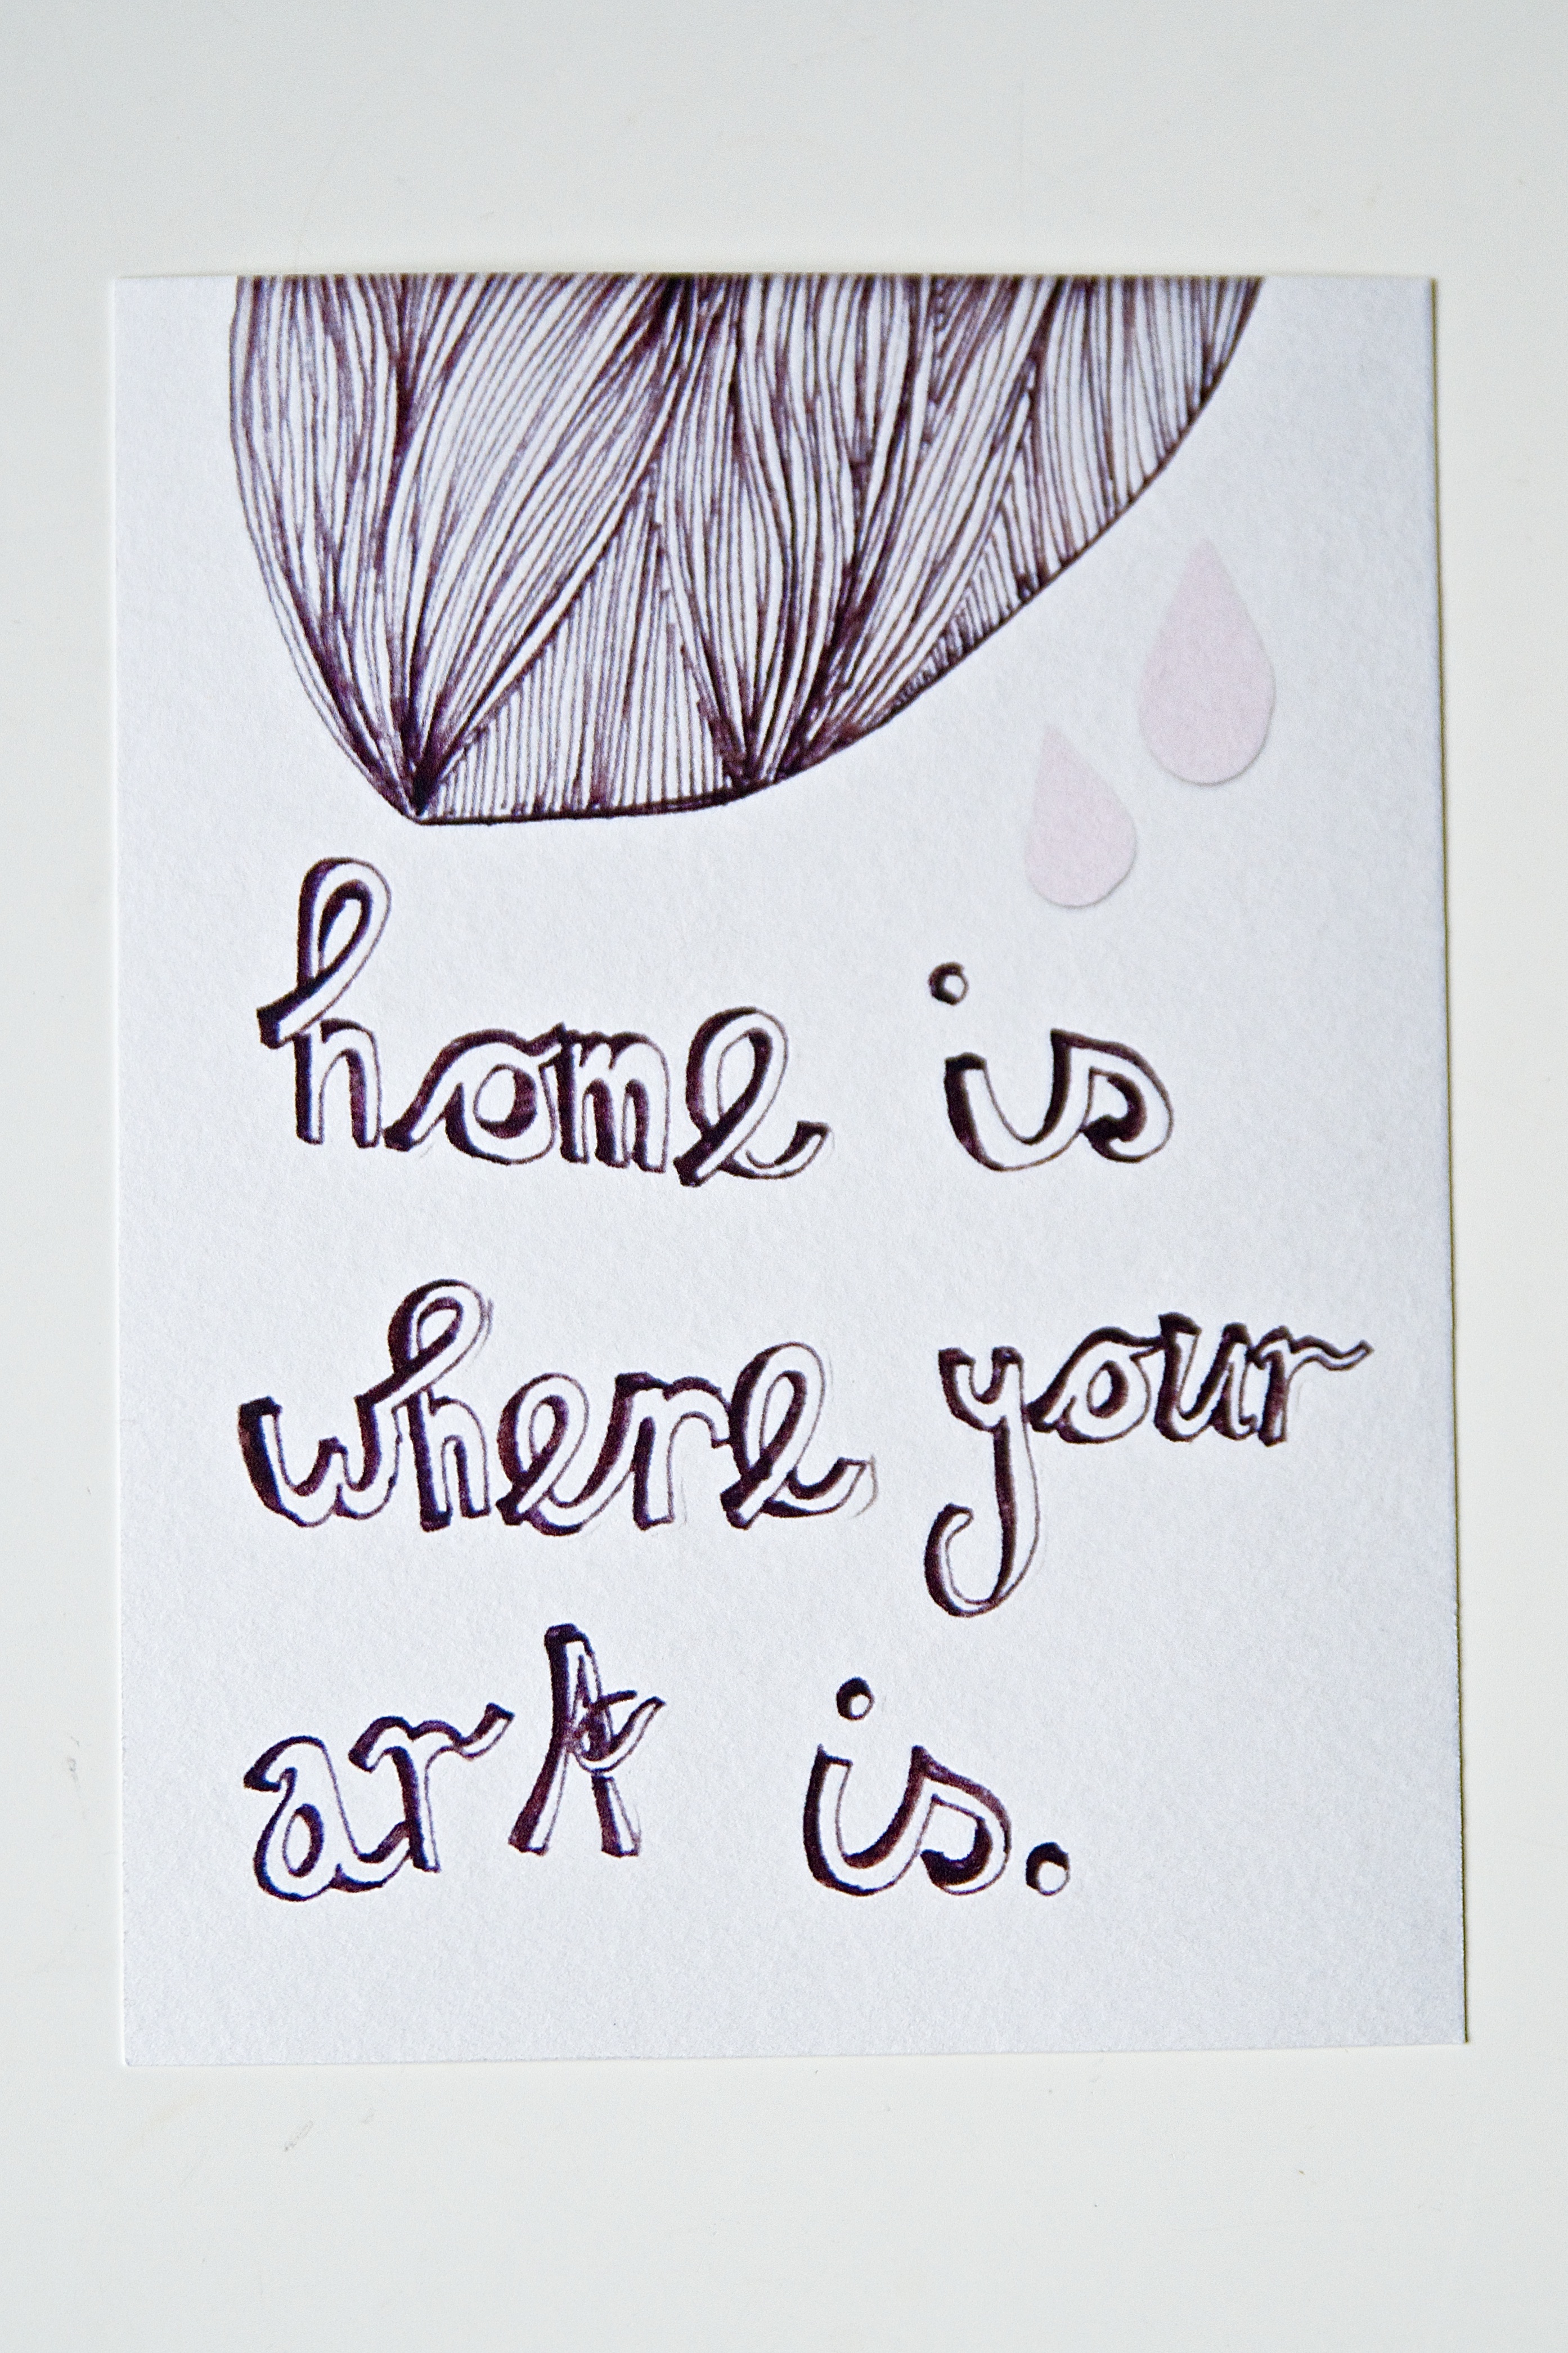 home is
where your
art is.